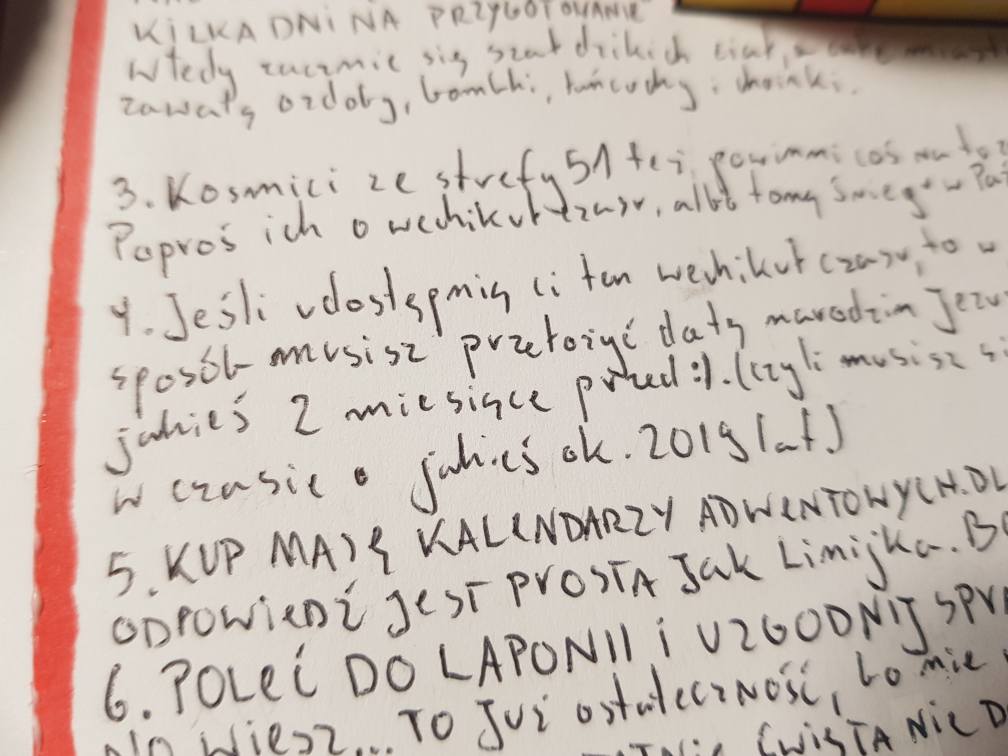 KILKA DNI NA PRZYGOTOWANIE
Wtedy zacznie się szał dzikich ciał, a całe miasto
zawalą ozdoby, bombki, łańcuchy i choinki.
3. Kosmici ze strefy 51 też powinni coś na to
Poproś ich o wechikuł czasu, albo tomą śniegu w
4. Jeśli udostępnią ci ten wechikuł czasu, to w
sposób musisz przełożyć datę narodzin Jezu
jakieś 2 miesiące przed :). (czyli musisz
w czasie o jakieś ok. 2019 lat)
5. KUP MASĘ KALENDARZY ADWENTOWYCH. DL
ODPOWIEDŹ JEST PROSTA JAK Linijka. B
6. POLEĆ DO LAPONII i UZGODNIJ SPR
NO WIESZ... TO JUŻ ostateczność, bo nie
ŚWIĘTA NIE D